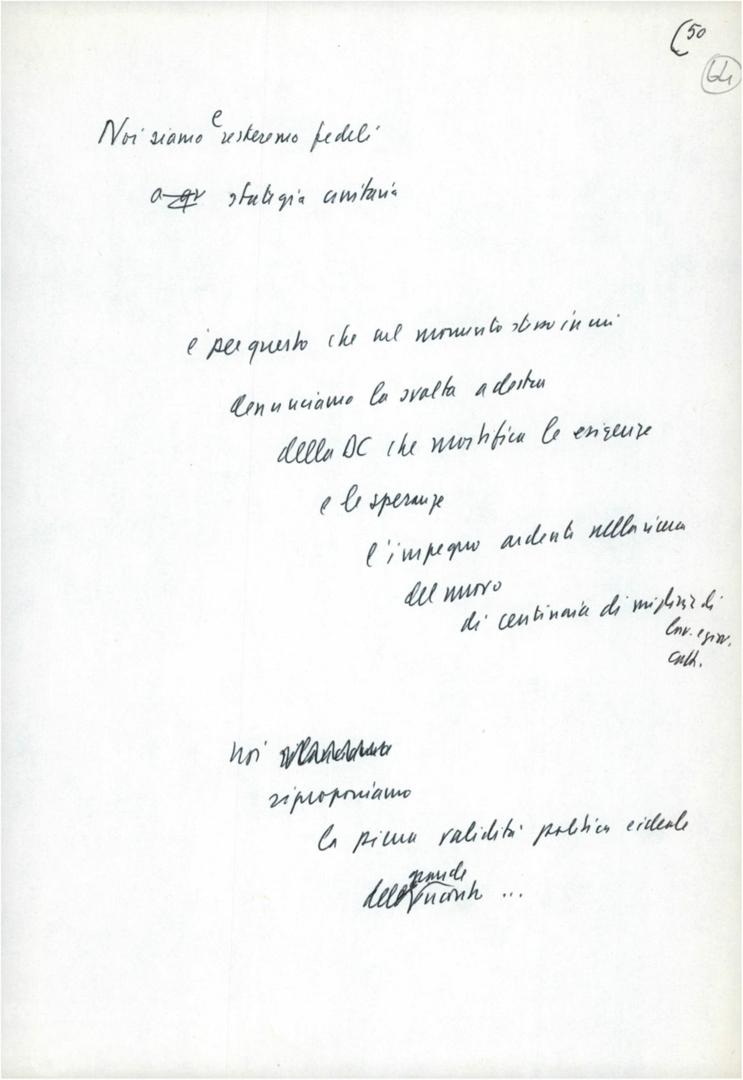 50
64
Noi siamo e resteremo fedeli
a strategia unitaria
è per questo che nel momento stesso in cui
denunciamo la svolta a destra
della DC che mortifica le esigenze
e le speranze
l'impegno ardente nella ricerca
del nuovo
di centinaia di migliaia di
lav. e giov.
catt.
noi
riproponiamo
la piena validità politica e ideale
del grande incontro ...